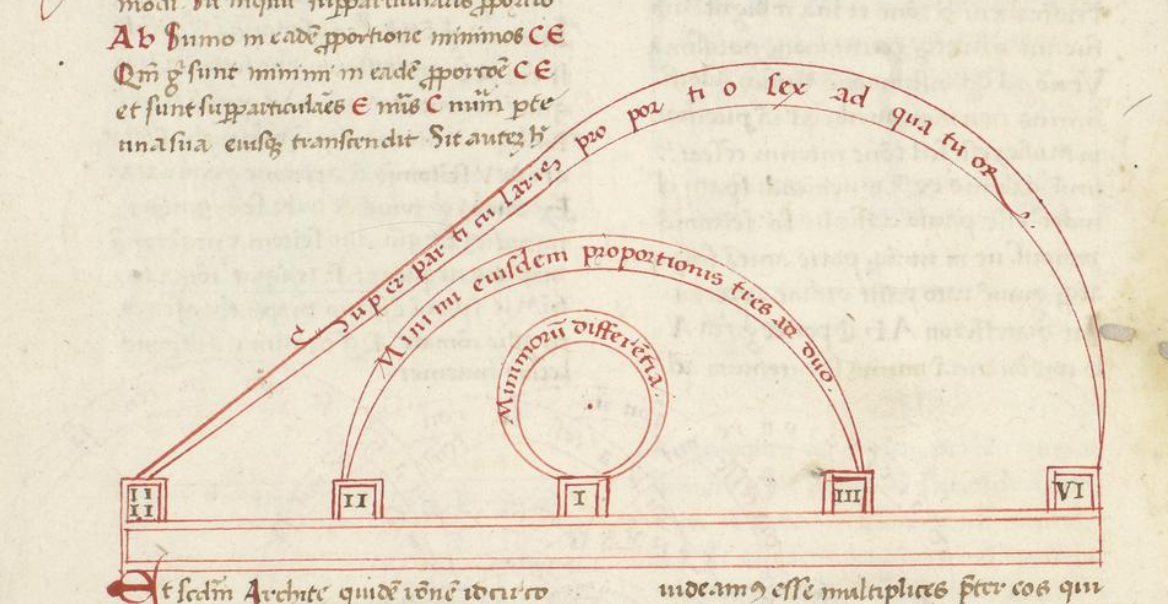 Ab Sumo in eadē ꝓportione minimos CE
Qm̄ gͥ sunt minimi in eadē ꝓportōē CE
et sunt suꝑparticulāēs E nūs C nūm ꝑte
una sua eiusqꝫ transcendit Sit autez
Superparticularis proportio sex ad quatuor
Minimi eiusdem proportionis tres ad duo.
Minimorū differētia.
II II
II
I
III
VI
Et scdm̄ Archite quidē
uideamꝰ esse multiplices p̄ter eos qui